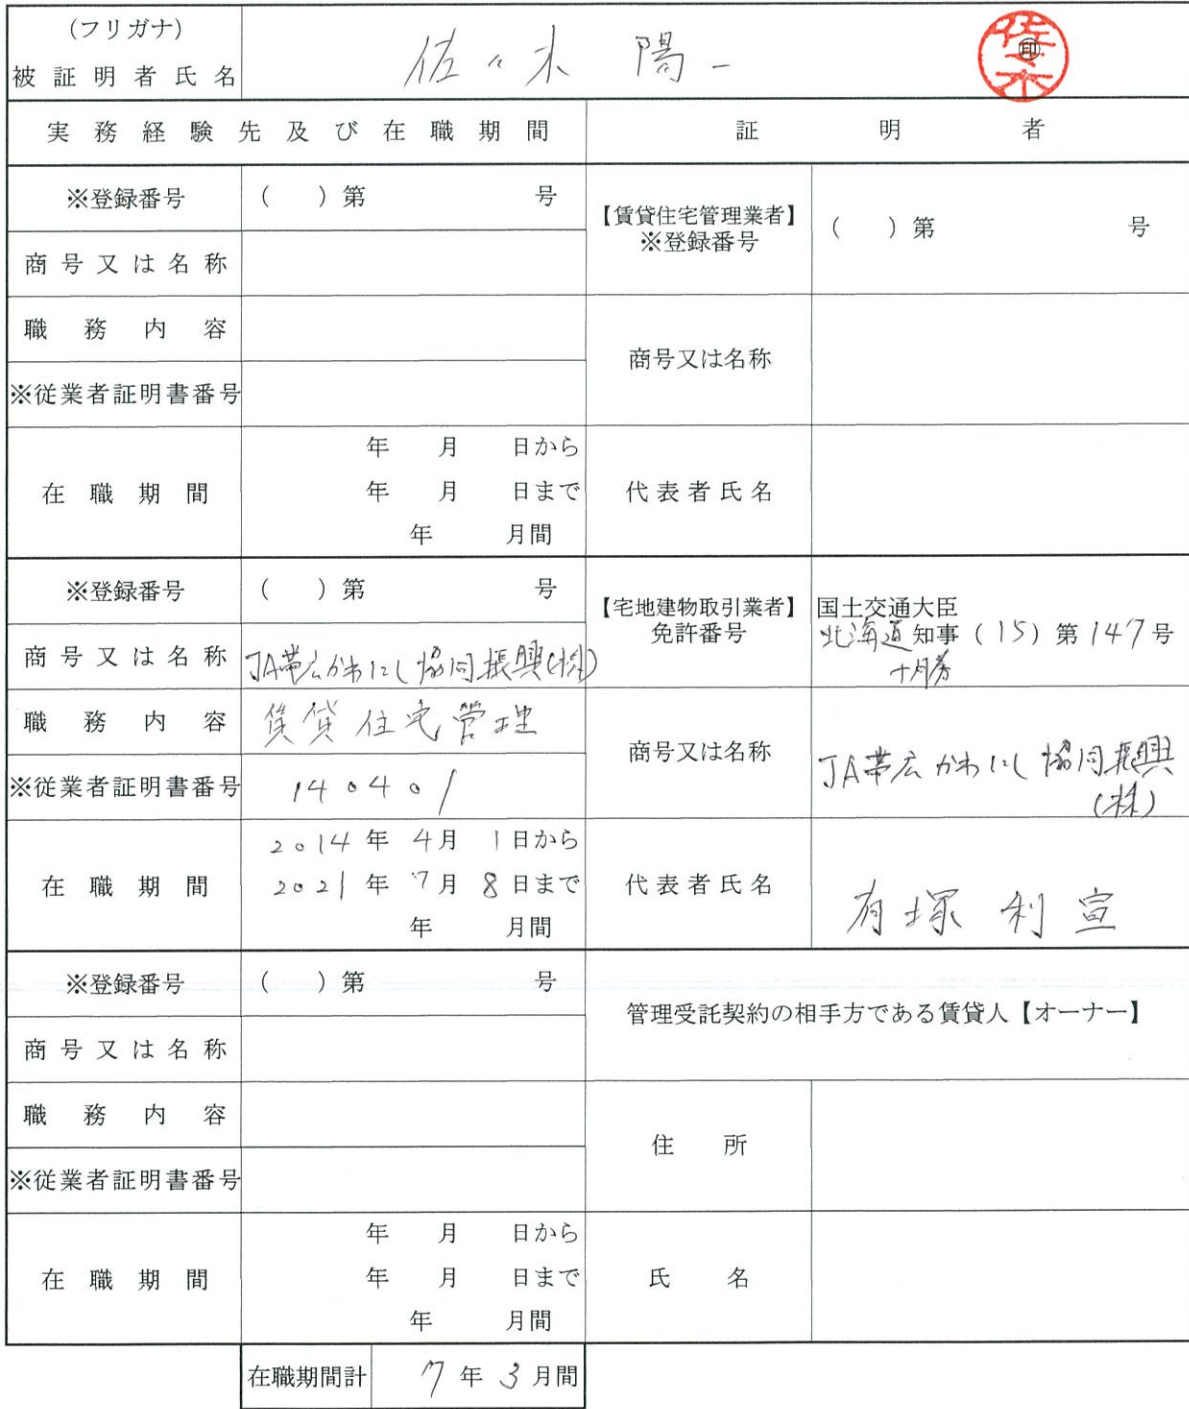 (フリガナ)
被証明者氏名
佐々木 陽一
佐々木
㊞
実務経験先及び在職期間
証明者
※登録番号
( )第 号
【賃貸住宅管理業者】
※登録番号
( )第 号
商号又は名称
職務内容
商号又は名称
※従業者証明書番号
在職期間
年 月 日から
年 月 日まで
年 月間
代表者氏名
※登録番号
( )第 号
【宅地建物取引業者】
免許番号
国土交通大臣
北海道 知事 (15) 第 147 号
十勝
商号又は名称
JA帯広かわにし協同振興(株)
職務内容
賃貸住宅管理
商号又は名称
JA帯広かわにし協同振興
(株)
※従業者証明書番号
140401
在職期間
2014年 4月 1日から
2021年 7月 8日まで
年 月間
代表者氏名
有塚 利宣
※登録番号
( )第 号
管理受託契約の相手方である賃貸人【オーナー】
商号又は名称
職務内容
住所
※従業者証明書番号
在職期間
年 月 日から
年 月 日まで
年 月間
氏名
在職期間計
7年3月間